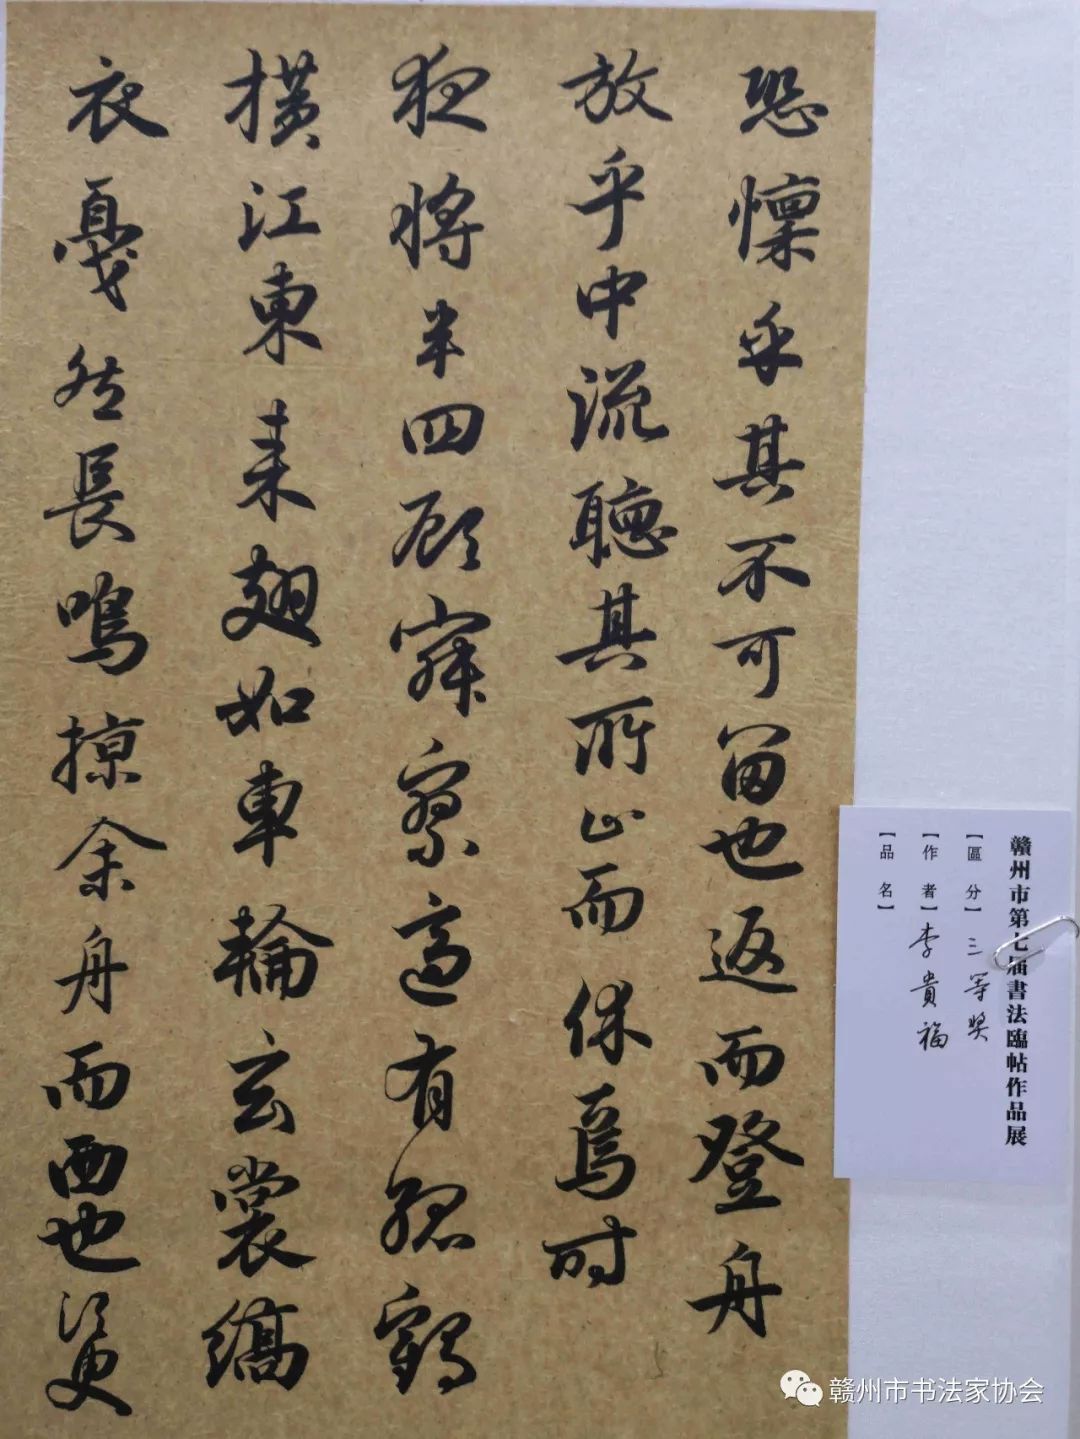 恐懍乎其不可留也返而登舟
放乎中流聽其所止而休焉時
夜將半四顧寂寥適有孤鶴
橫江東來翅如車輪玄裳縞
衣戛然長鳴掠余舟而西也須臾
贛州市第七届書法臨帖作品展
【區 分】三等奖
【作 者】李貴福
【品 名】
赣州市书法家协会